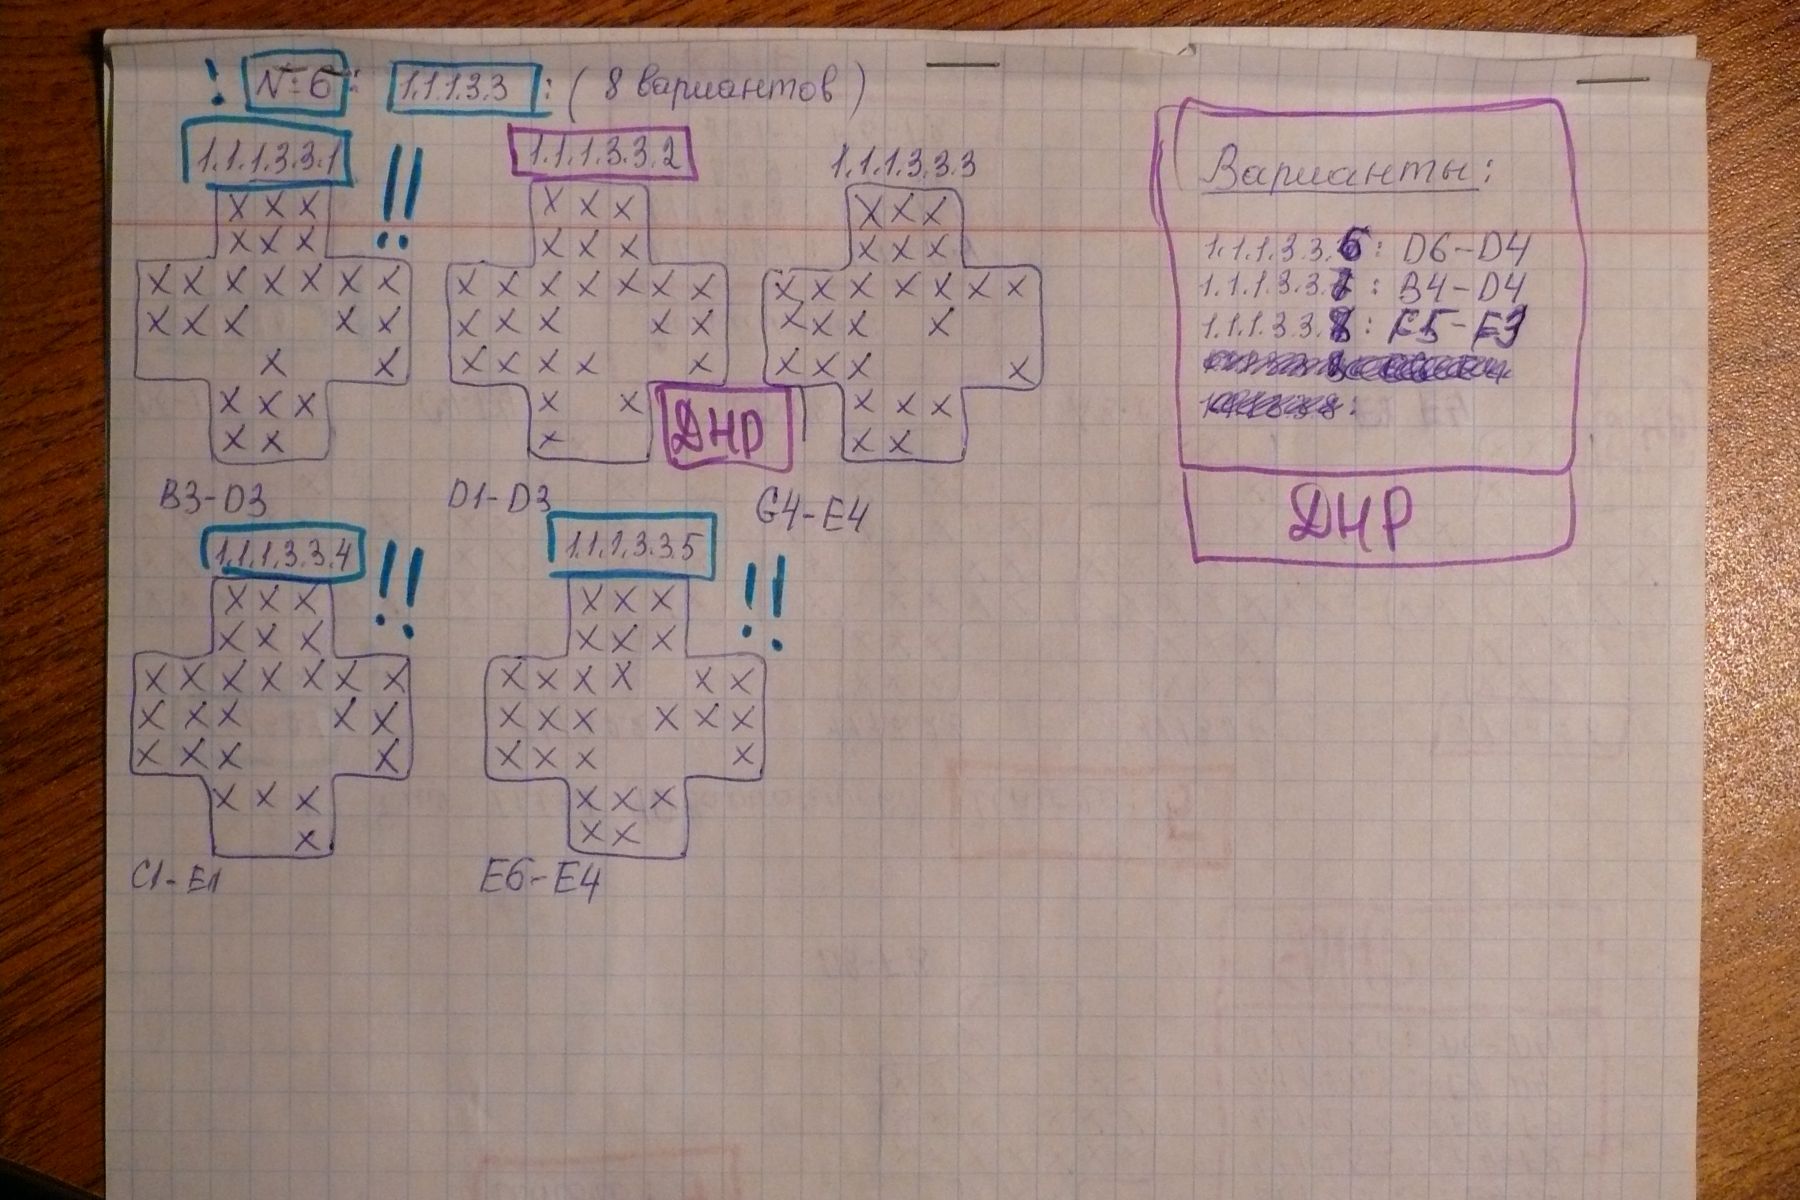 ! №6: 1.1.1.3.3: ( 8 вариантов )
1.1.1.3.3.1 !!
1.1.1.3.3.2
1.1.1.3.3.3
X X X
X X X
X X X X X X X
X X X X X
X X
X X X
X X
B3-D3
X X X
X X X
X X X X X X X
X X X X X
X X X X X
X X
X
ДНР
D1-D3
X X X
X X X
X X X X X X X
X X X X
X X X X
X X X
X X
G4-E4
1.1.1.3.3.4 !!
X X X
X X X
X X X X X X X
X X X X X
X X X X
X X X
X
C1-E1
1.1.1.3.3.5 !!
X X X
X X X
X X X X X X
X X X X X X
X X X X
X X X
X X
E6-E4
Варианты:
1.1.1.3.3.6: D6-D4
1.1.1.3.3.7: B4-D4
1.1.1.3.3.8: E5-E3
ДНР